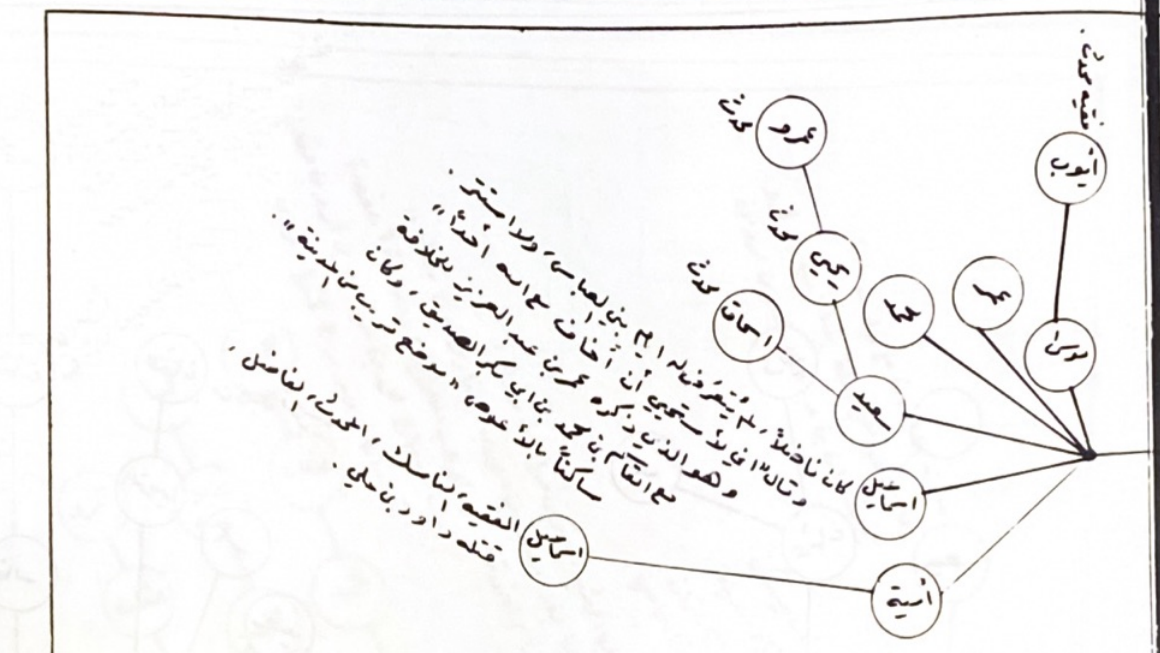 فقيه محدث .
أيوب
موسى
عمر
محمد
عمرو
محدث
يحيى
محدث
اسحاق
محدث
سعيد
اسماعيل
كان فاضلاً، لم يُتعرّض له ايام بني العباس، ولا استتر .
وقال " اني لأستحيي أن أخاف مع الله أحداً "
وهو الذي ذكره عمر بن عبد العزيز للخلافة
مع القاسم بن محمد بن ابي بكر الصديق، وكان
ساكناً بالأعوص " موضع قريب من المدينة " .
أمية
اسماعيل
الفقيه، الناسك، المحدث، الفاضل .
قتله داود بن علي .